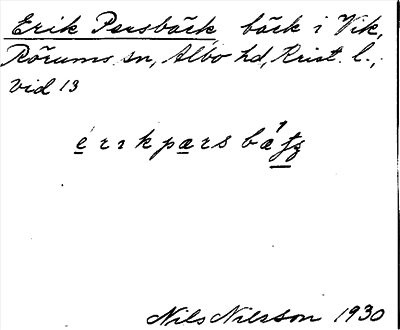 Erik Persbäck, bäck i Vik,
Rörums sn, Albo hd, Krist. l.,
vid 13
Nils Nilsson 1930